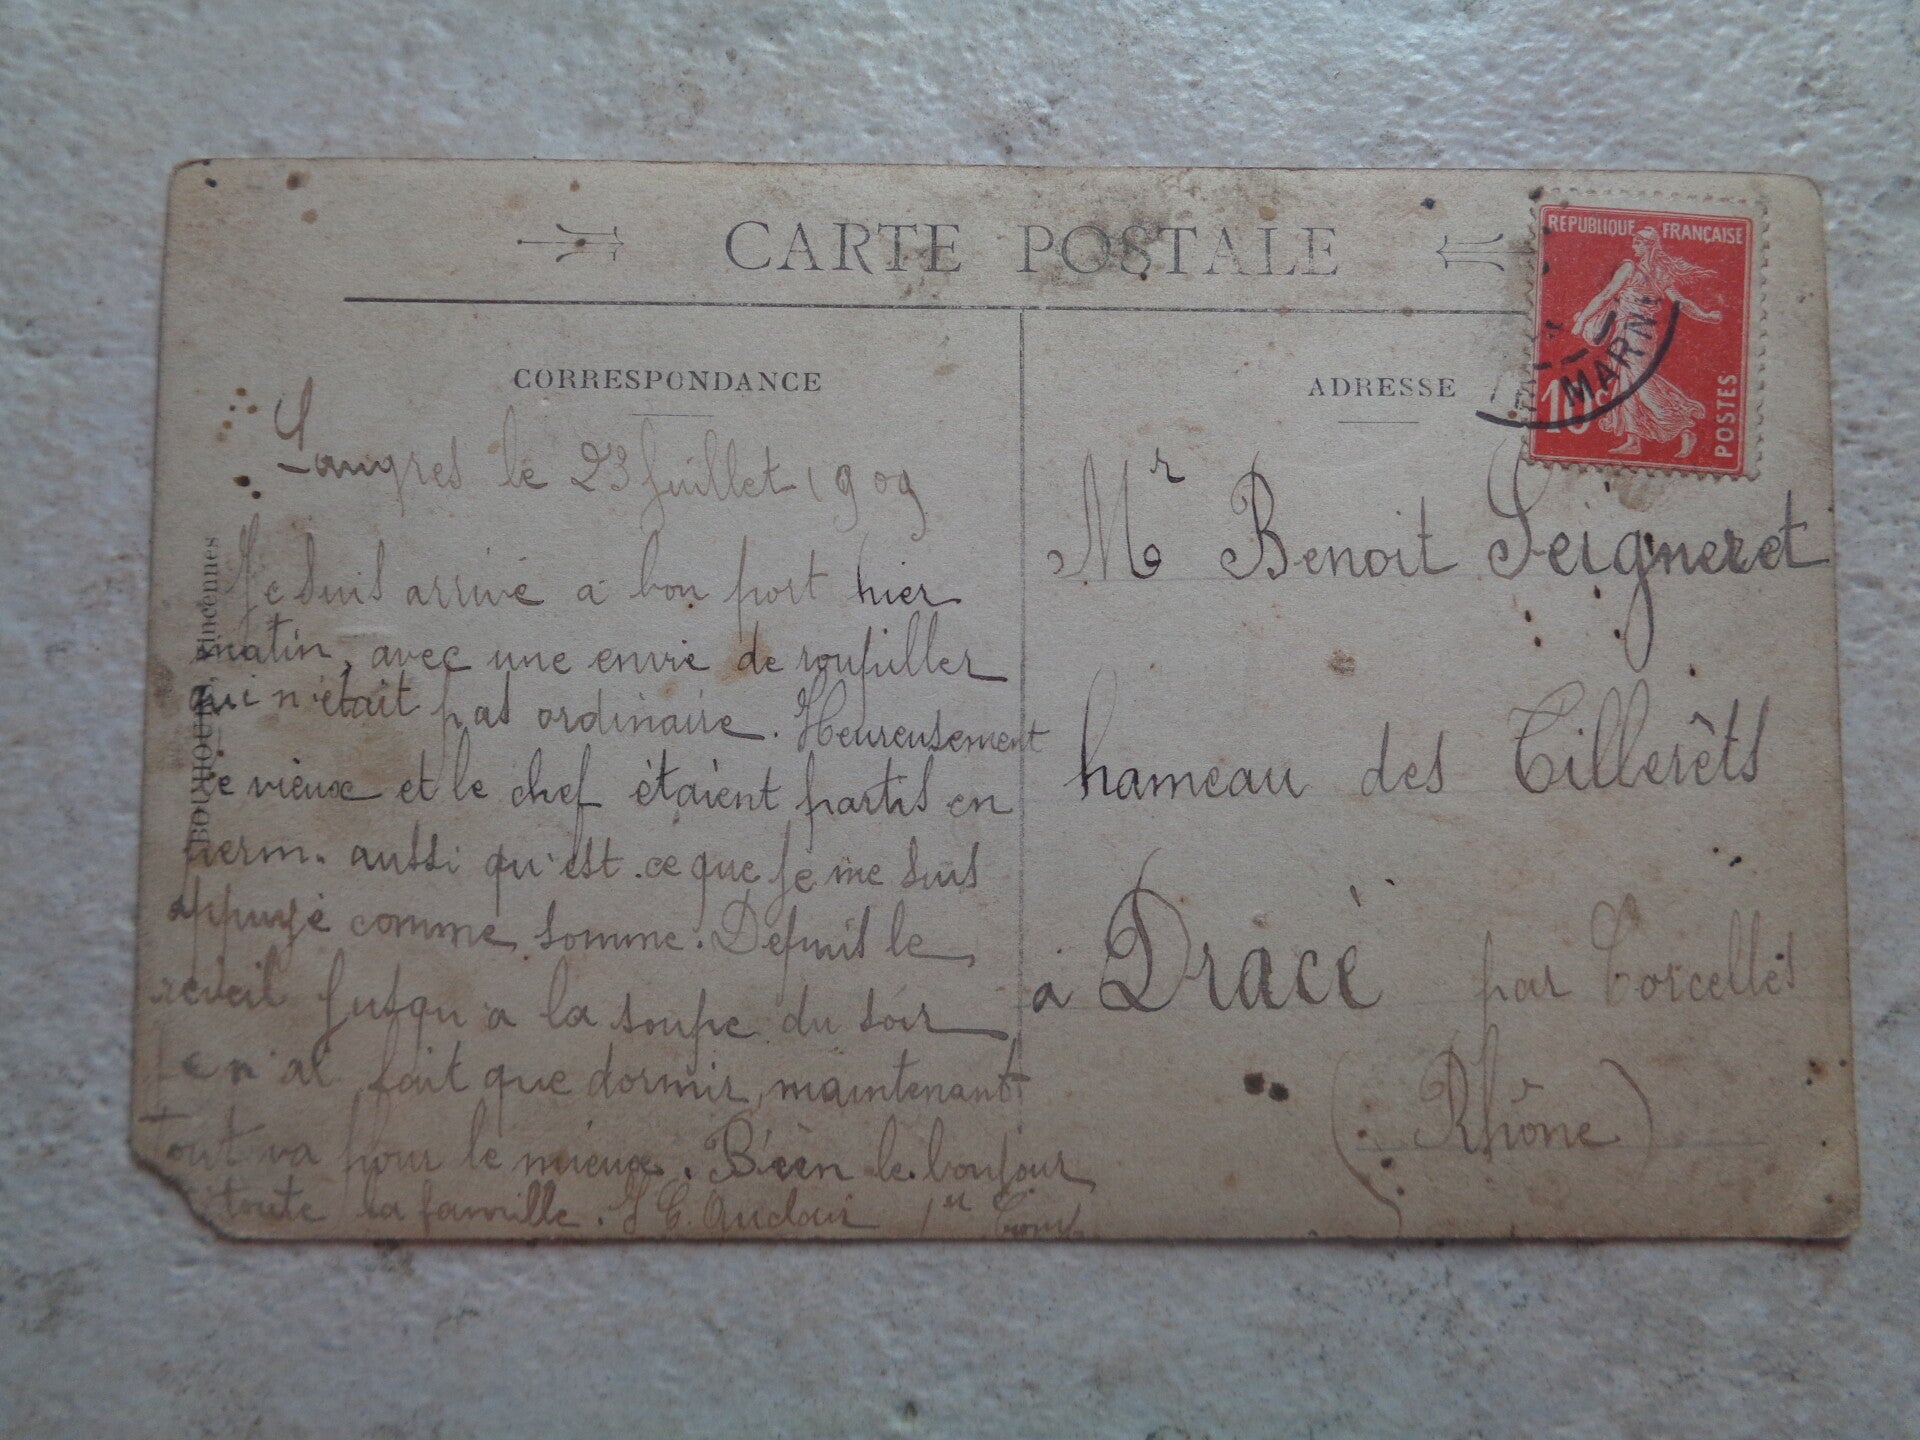 CARTE POSTALE
REPUBLIQUE FRANÇAISE
10c
POSTES
MARNE
CORRESPONDANCE
ADRESSE
Langres le 23 Juillet 1909
Je suis arrivé a bon port hier
matin, avec une envie de roupiller
qui n'était pas ordinaire. Heureusement
le vieux et le chef étaient partis en
perm. aussi qu'est-ce que je me suis
appuyé comme somme. Depuis le
réveil jusqu'a la soupe du soir
Je n'ai fait que dormir, maintenant
tout va pour le mieux. Bien le bonjour
toute la famille.
Mr Benoit Seigneret
hameau des Tillerêts
à Dracé par Corcelles
(Rhône)
Vincennes